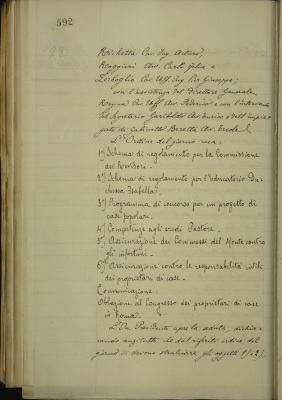 592
Rocchetta Cav. Ing. Arturo,
Reggiori Avv. Carlo Felice e
Cav. Uff. Ing. Cav. Giuseppe;
con l'assistenza del Direttore Generale
Cav. Uff. Avv. Federico e con l'intervento
del Segretario Garibaldi Avv. Enrico e dell'impie-
gato di Gabinetto Beretta Avv. Ercole.
L'Ordine del giorno reca:
1°) Schema di regolamento per la Commissione
dei Revisori.
2°) Schema di regolamento per l'Educatorio Du-
chessa Isabella.
3°) Programma di concorso per un progetto di
case popolari.
4°) Competenze agli eredi Pastore.
5°) Assicurazione dei Commessi del Monte contro
gli infortuni.
6°) Assicurazione contro le responsabilità civili
dei proprietari di case.
Comunicazione:
Oblazione al Congresso dei proprietari di case
in Roma.
Il Sig. Presidente apre la seduta, dichia-
rando anzitutto che dal riferito ordine del
giorno si devono stralciare gli oggetti 1°) e 2°),